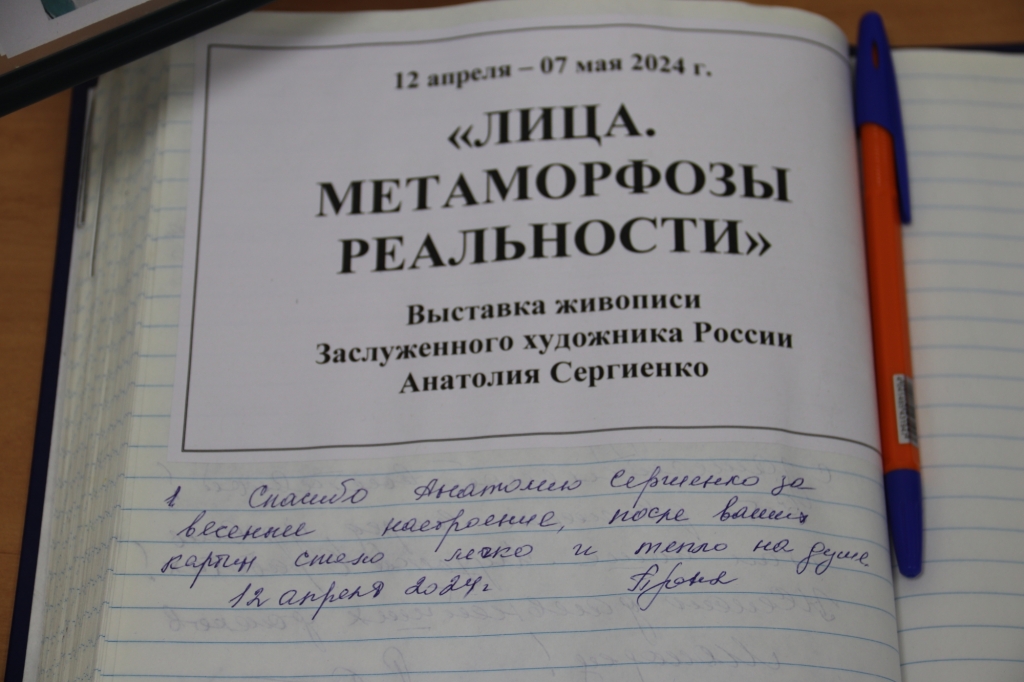 12 апреля – 07 мая 2024 г.
«ЛИЦА.
МЕТАМОРФОЗЫ
РЕАЛЬНОСТИ»
Выставка живописи
Заслуженного художника России
Анатолия Сергиенко
1 Спасибо Анатолию Сергиенко за
весеннее настроение, после ваших
картин стало легко и тепло на душе
12 апреля 2024г